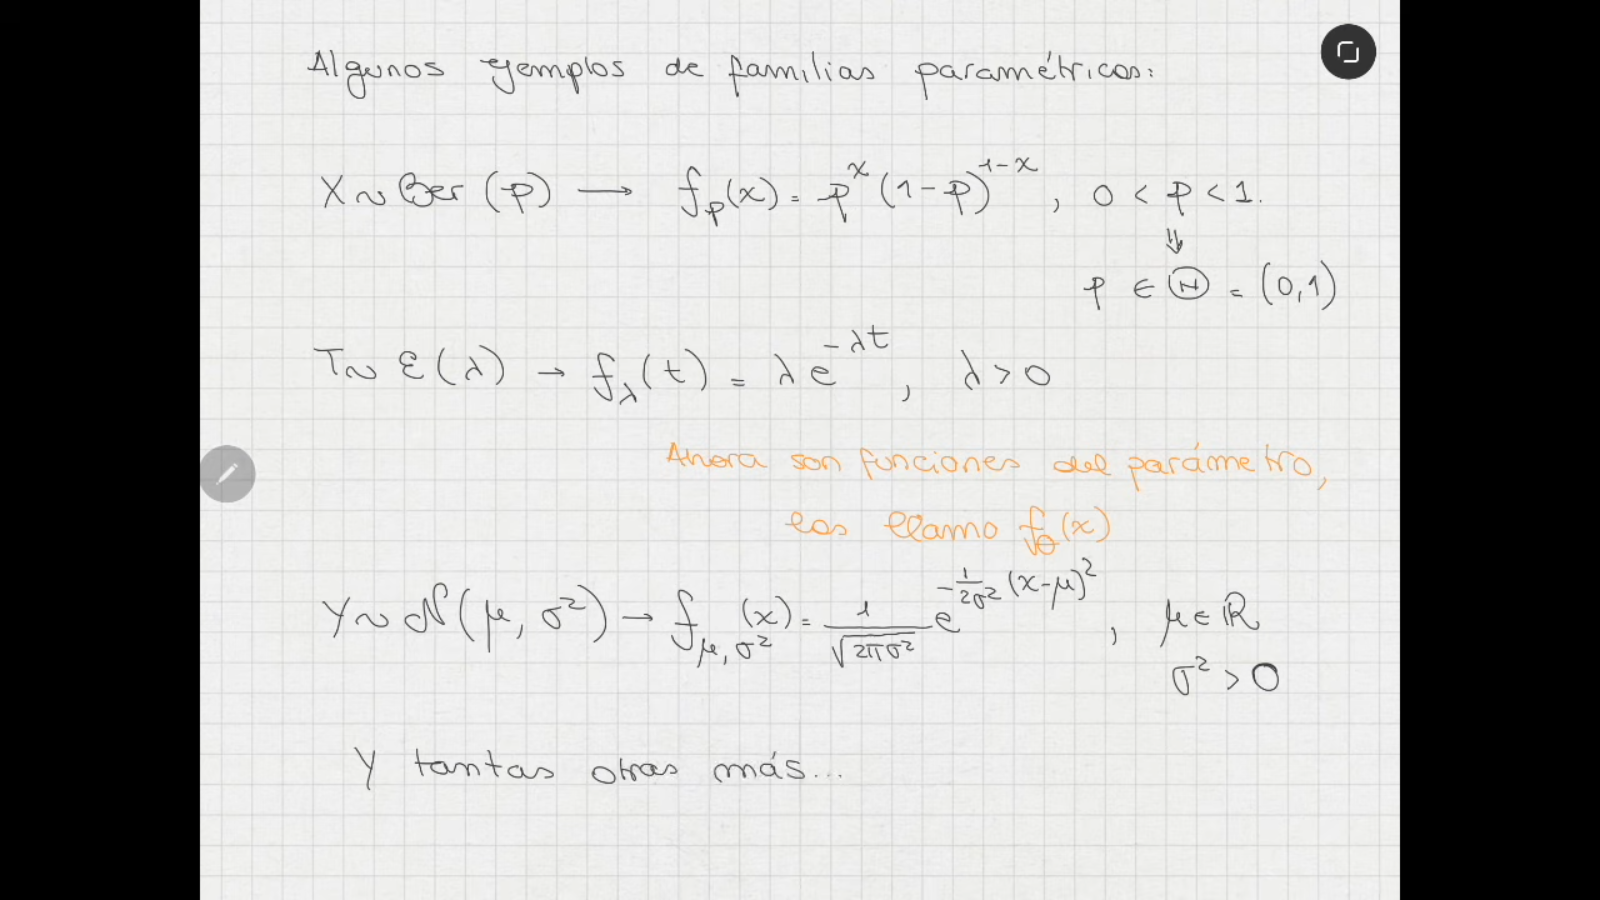 Algunos ejemplos de familias paramétricas:
X ~ Ber (p) → f_p(x) = p^x (1-p)^{1-x} , 0 < p < 1.
⇓
p ∈ Θ = (0,1)
T ~ ε(λ) → f_λ(t) = λ e^{-λt} , λ > 0
Ahora son funciones del parámetro,
las llamo f_θ(x)
Y ~ N(μ, σ²) → f_{μ, σ²}(x) = 1/√(2πσ²) e^{-1/(2σ²) (x-μ)²} , μ ∈ ℝ
σ² > 0
Y tantas otras más...